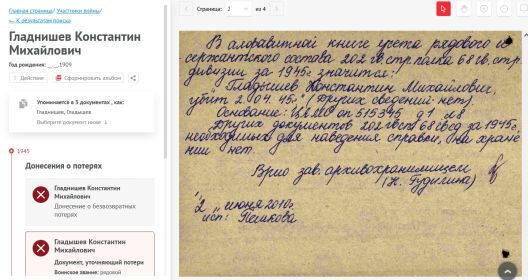 Главная страница/ Участники войны/
← К результатам поиска
Гладнишев Константин
Михайлович
Год рождения: __.__.1909
Действия
Сформировать альбом
Упоминается в 3 документах, как:
Гладнишев, Гладышев
Выберите документ ниже ↓
1945
Донесения о потерях
Гладнишев Константин
Михайлович
Донесение о безвозвратных
потерях
Гладышев Константин
Михайлович
Документ, уточняющий потери
Воинское звание: рядовой
Страница: 2 из 4
В алфавитной книге учета рядового и
сержантского состава 202 гв. стр. полка 68 гв. стр
дивизии за 1945г значится:
Гладышев Константин Михайлович,
убит 2.04.45г. (Других сведений нет).
Основание: ЦАМО оп 515345 д 1 л8
Других документов 202 гвсп 68 гвсд за 1945г,
необходимых для наведения справки, на хране
нии нет.
Врио зав. архивохранилищем
(Н. Гудилина)
"2 июня 2010г.
исп: Пешкова